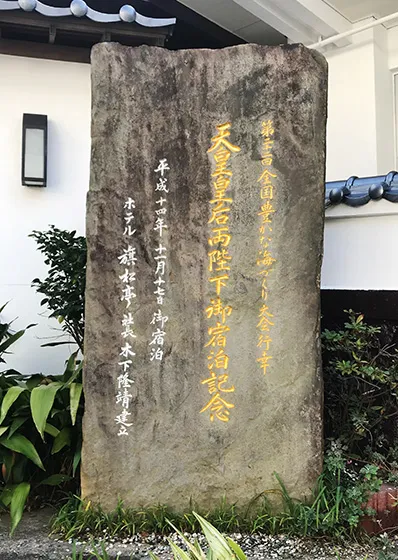 第二十二回全国豊かな海づくり大会行幸
天皇皇后両陛下御宿泊記念
平成十四年 十一月十七日 御宿泊
ホテル 旗松亭 社長 木下隆靖建立